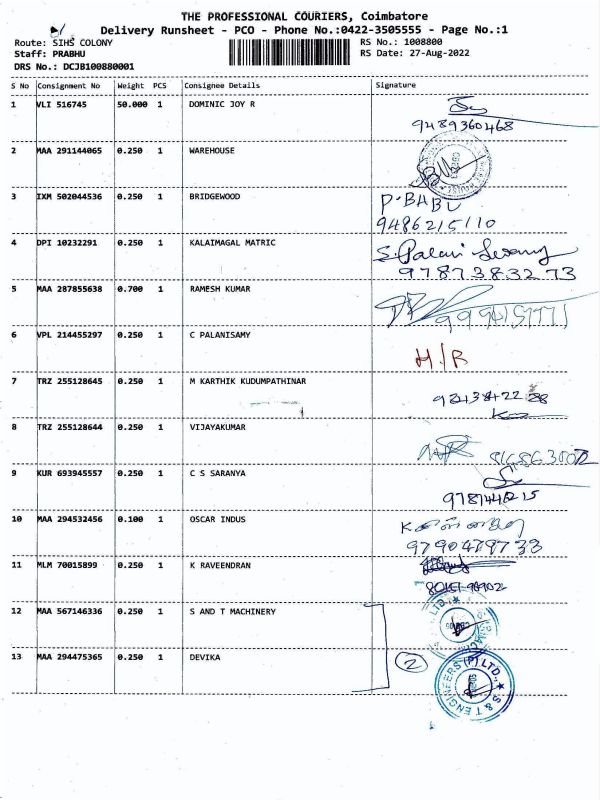 THE PROFESSIONAL COURIERS, Coimbatore
Delivery Runsheet - PCO - Phone No.:0422-3505555 - Page No.:1
Route: SIHS COLONY
RS No.: 1008800
Staff: PRABHU
RS Date: 27-Aug-2022
DRS No.: DCJB100880001
S No Consignment No Weight PCS Consignee Details Signature
1 VLI 516745 50.000 1 DOMINIC JOY R
9489360468
2 MAA 291144065 0.250 1 WAREHOUSE
3 IXM 502044536 0.250 1 BRIDGEWOOD P. BABU
9486215110
4 DPI 10232291 0.250 1 KALAIMAGAL MATRIC S. Palani
9787383273
5 MAA 287855638 0.700 1 RAMESH KUMAR
6 VPL 214455297 0.250 1 C PALANISAMY
H/R
7 TRZ 255128645 0.250 1 M KARTHIK KUDUMPATHINAR
8 TRZ 255128644 0.250 1 VIJAYAKUMAR
9 KUR 693945557 0.250 1 C S SARANYA
10 MAA 294532456 0.100 1 OSCAR INDUS
9790479733
11 MLM 70015899 0.250 1 K RAVEENDRAN
12 MAA 567146336 0.250 1 S AND T MACHINERY
13 MAA 294475365 0.250 1 DEVIKA
2
S & T ENGINEERS (P) LTD.,